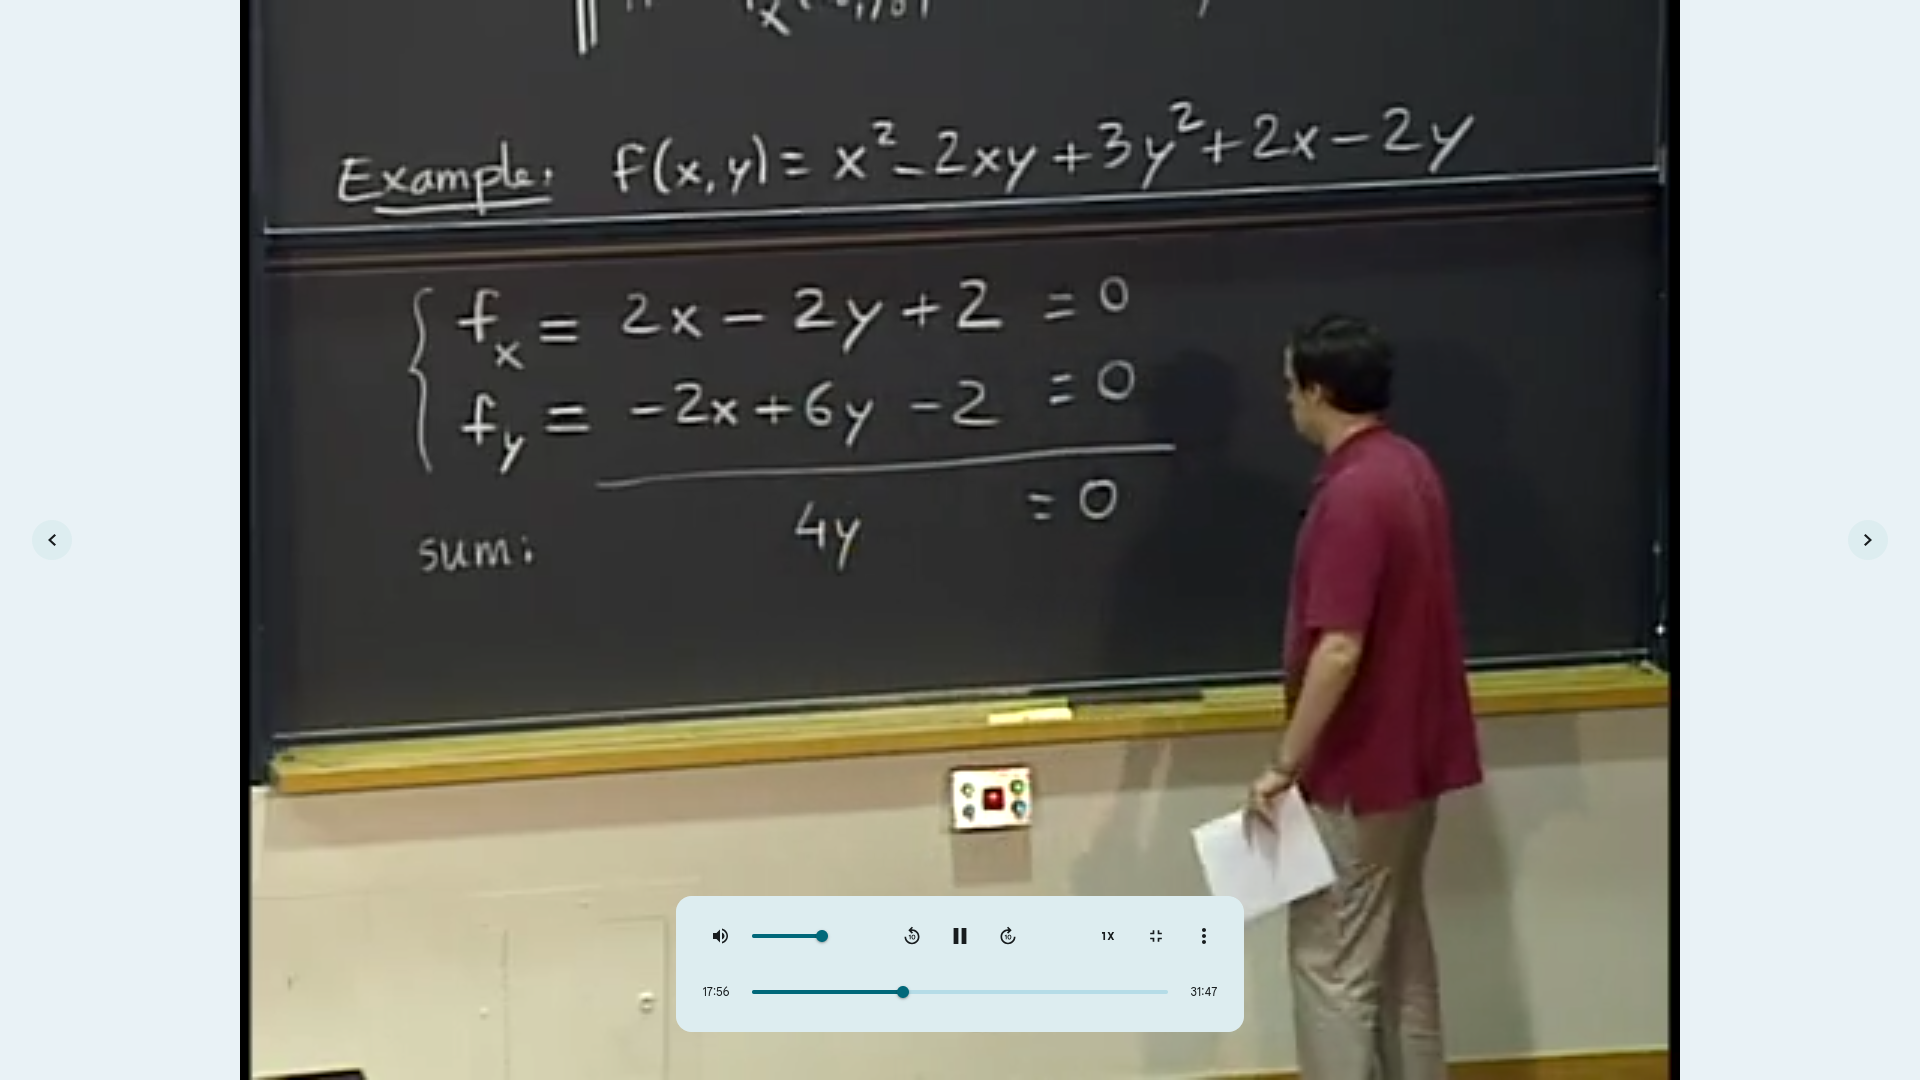 Example: f(x,y) = x² - 2xy + 3y² + 2x - 2y
f_x = 2x - 2y + 2 = 0
f_y = -2x + 6y - 2 = 0
sum: 4y = 0
10
10
1X
17:56
31:47